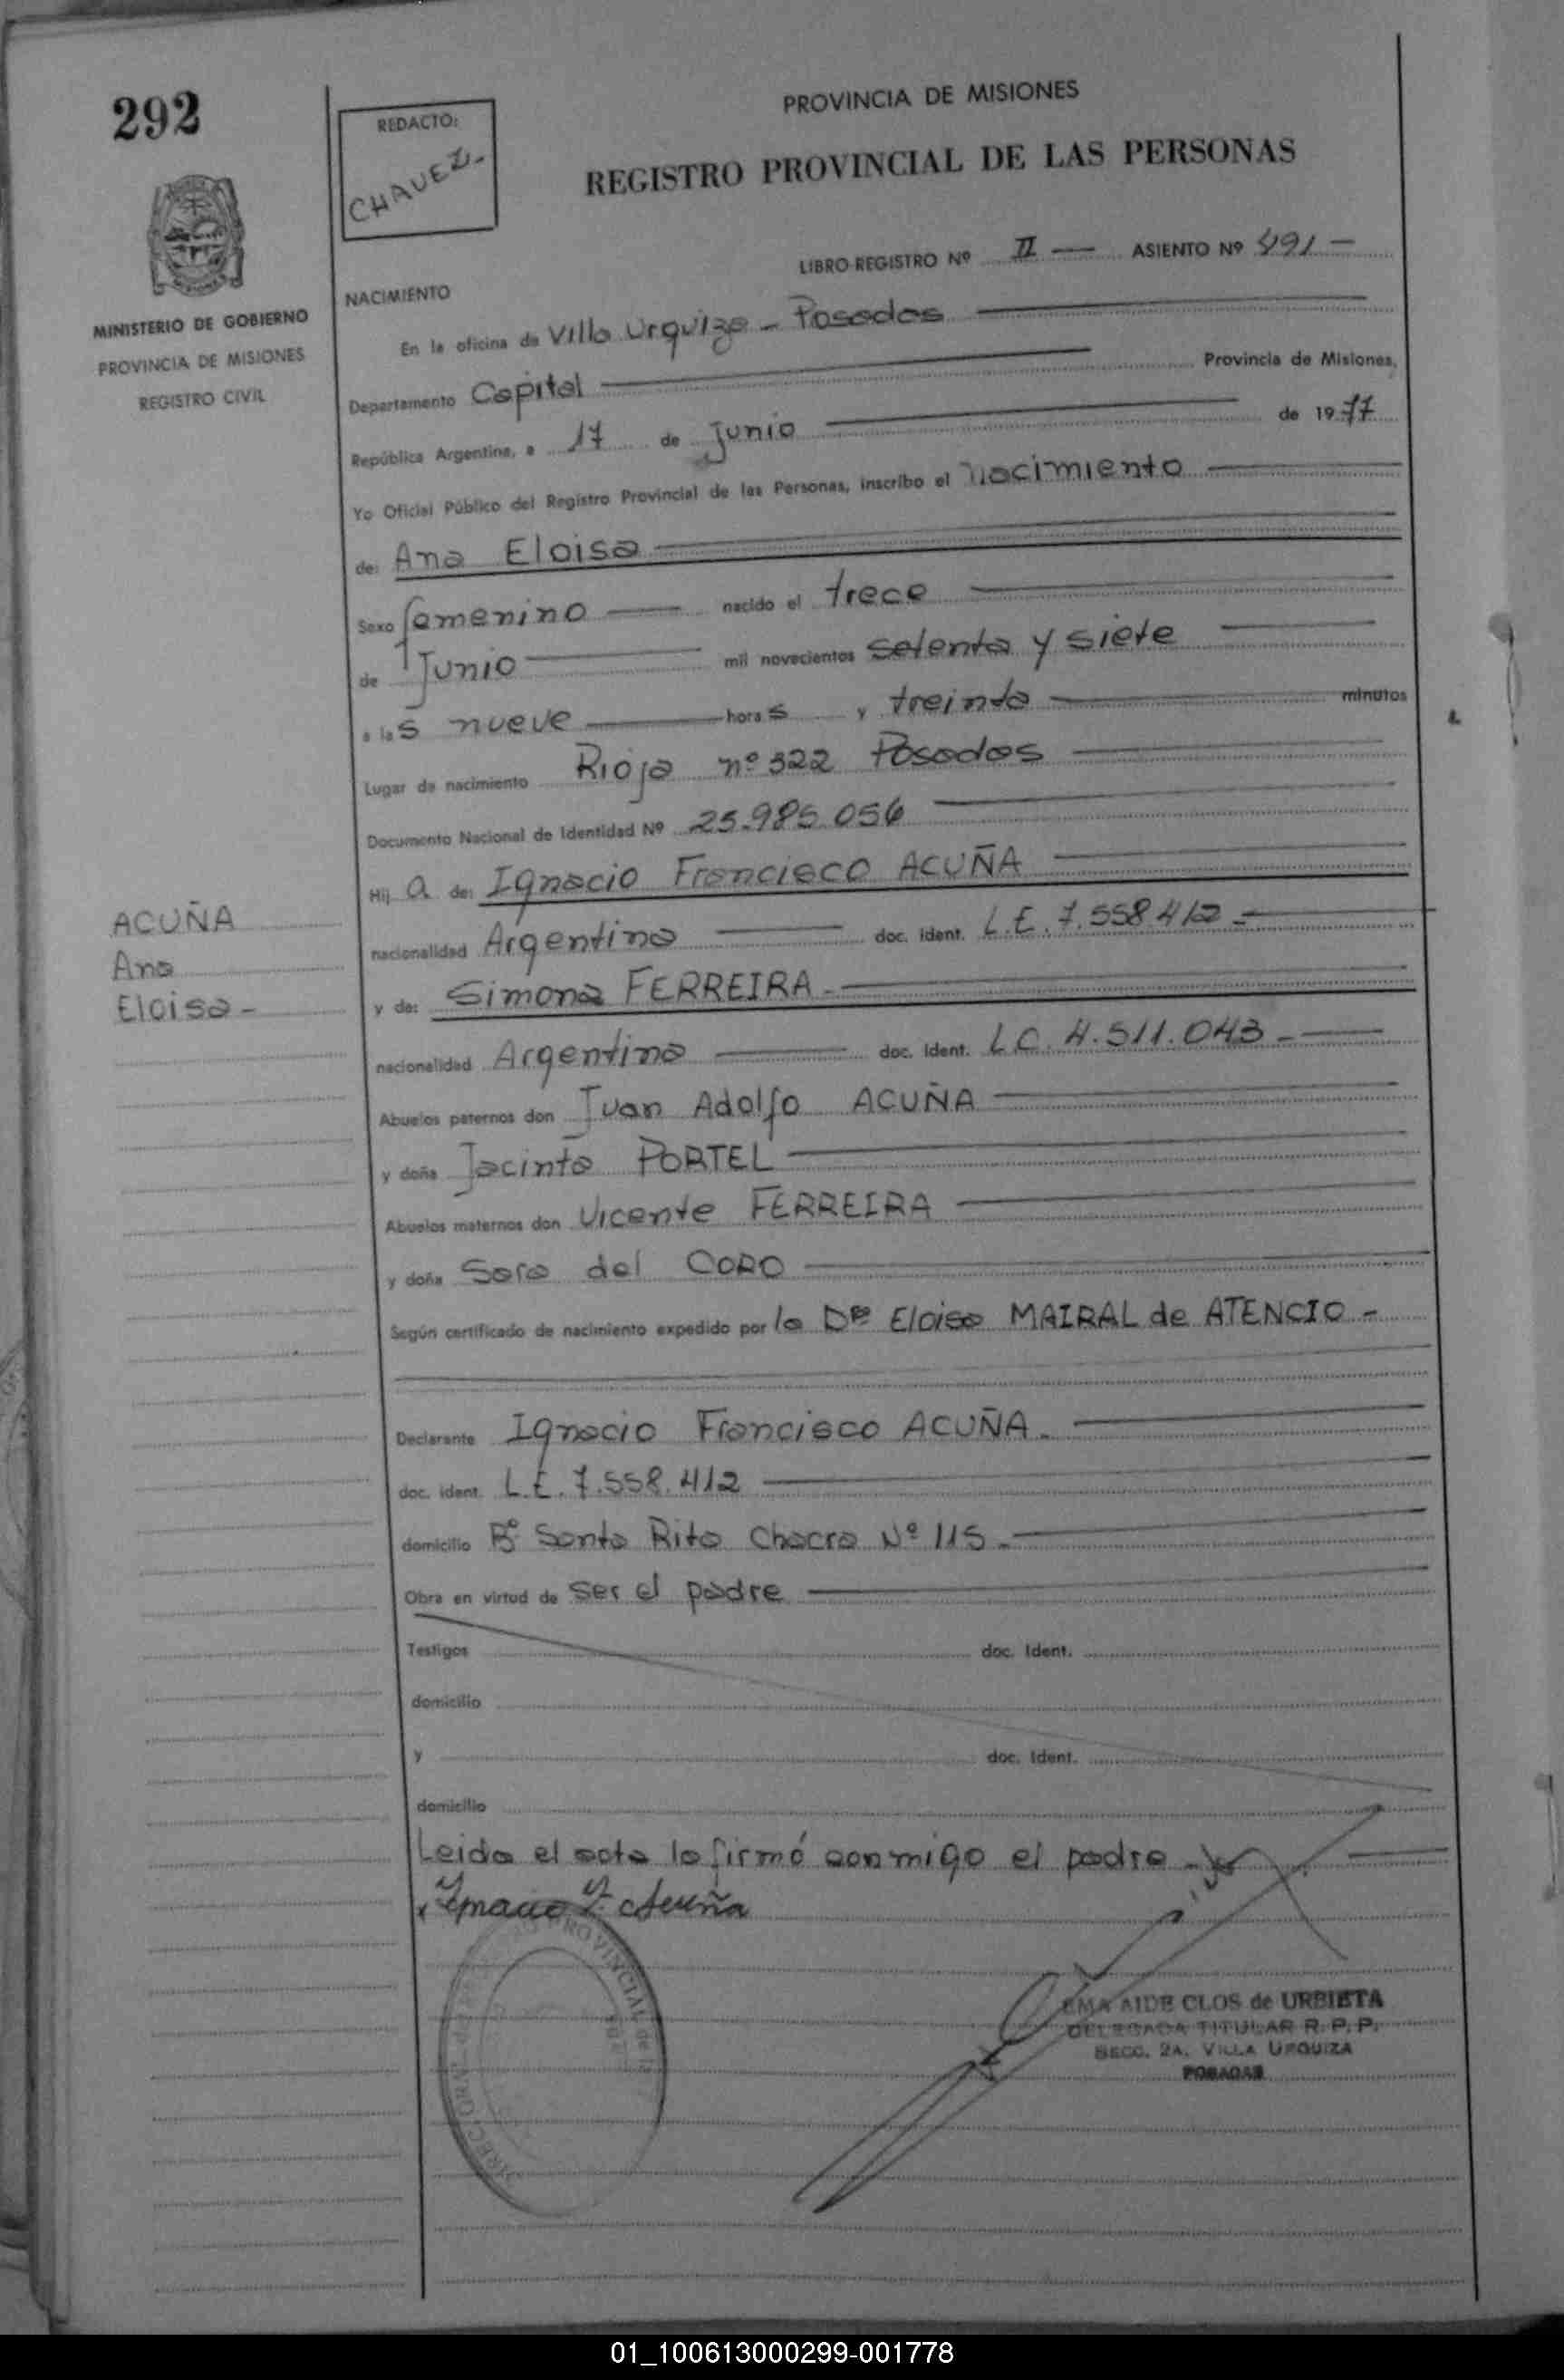 292
REDACTO:
CHAVEZ.-
PROVINCIA DE MISIONES
REGISTRO PROVINCIAL DE LAS PERSONAS
LIBRO-REGISTRO Nº II — ASIENTO Nº 491 —
MINISTERIO DE GOBIERNO
PROVINCIA DE MISIONES
REGISTRO CIVIL
NACIMIENTO
En la oficina de Villa Urquiza - Posadas
Departamento Capital Provincia de Misiones,
República Argentina, a 17 de Junio de 1977
Yo Oficial Público del Registro Provincial de las Personas, inscribo el nacimiento
de: Ana Eloisa
Sexo femenino nacido el trece
de Junio mil novecientos setenta y siete
a las nueve horas y treinta minutos
Lugar de nacimiento Rioja nº 322 Posadas
Documento Nacional de Identidad Nº 25.985.056
Hija de: Ignacio Francisco ACUÑA
nacionalidad Argentina doc. ident. L.E. 7.558.412 -
ACUÑA
Ana
Eloisa -
y de: Simona FERREIRA -
nacionalidad Argentina doc. ident. L.C. 4.511.043 -
Abuelos paternos don Juan Adolfo ACUÑA
y doña Jacinta PORTEL
Abuelos maternos don Vicente FERREIRA
y doña Sara del CORO
Según certificado de nacimiento expedido por la Dra Eloisa MAIRAL de ATENCIO -
Declarante Ignacio Francisco ACUÑA.
doc. ident. L.E. 7.558.412
domicilio Bº Santa Rita Chacra Nº 115 -
Obra en virtud de ser el padre
Testigos doc. ident.
domicilio
y doc. ident.
domicilio
Leida el acta la firmó conmigo el padre -
Ignacio F. Acuña
PROVINCIAL de la
EMA AIDE CLOS de URBIETA
DELEGADA TITULAR R. P. P.
SECC. 2A. VILLA URQUIZA
POSADAS
01_100613000299-001778